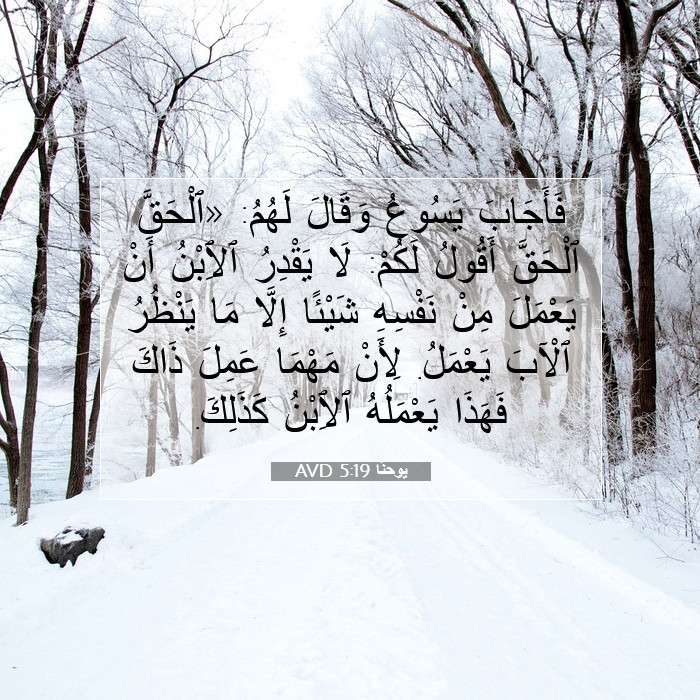 فَأَجَابَ يَسُوعُ وَقَالَ لَهُمُ: «ٱلْحَقَّ
ٱلْحَقَّ أَقُولُ لَكُمْ: لَا يَقْدِرُ ٱلِٱبْنُ أَنْ
يَعْمَلَ مِنْ نَفْسِهِ شَيْئًا إِلَّا مَا يَنْظُرُ
ٱلْآبَ يَعْمَلُ. لِأَنْ مَهْمَا عَمِلَ ذَاكَ
فَهَذَا يَعْمَلُهُ ٱلِٱبْنُ كَذَلِكَ.
يوحنا 5:19 AVD